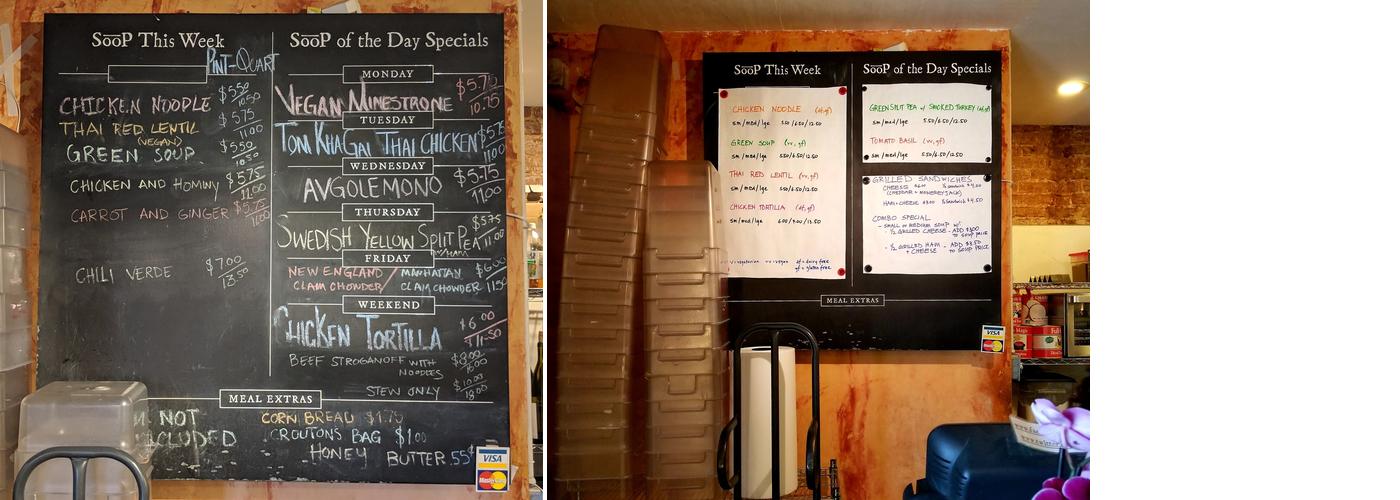 SooP This Week
PINT-QUART
CHICKEN NOODLE $5.50 10.50
THAI RED LENTIL $5.75 11.00
(VEGAN)
GREEN SOUP $5.50 10.50
CHICKEN AND HOMINY $5.75 11.00
CARROT AND GINGER $5.75 11.00
CHILI VERDE $7.00 13.50
SooP of the Day Specials
MONDAY
VEGAN MINESTRONE $5.75 10.75
TUESDAY
TOM KHA GAI THAI CHICKEN $5.75 11.00
WEDNESDAY
AVGOLEMONO $5.75 11.00
THURSDAY
SWEDISH YELLOW SPLIT PEA $5.75 11.00
W/HAM
FRIDAY
NEW ENGLAND / MANHATTAN $6.00
CLAM CHOWDER CLAM CHOWDER 11.50
WEEKEND
CHICKEN TORTILLA $6.00 11.50
BEEF STROGANOFF WITH NOODLES
STEW ONLY $10.00 18.00
MEAL EXTRAS
NOT
CORN BREAD $1.75
CROUTONS BAG $1.00
HONEY BUTTER .55¢
VISA
MasterCard
SooP This Week
CHICKEN NOODLE (df,gf)
sm/med/lge 5.50/6.50/12.50
GREEN SOUP (vv, gf)
sm/med/lge 5.50/6.50/12.50
THAI RED LENTIL (vv, gf)
sm/med/lge 5.50/6.50/12.50
CHICKEN TORTILLA (df, gf)
sm/med/lge 6.00/7.00/13.50
df = dairy free
gf = gluten free
SooP of the Day Specials
GREEN SPLIT PEA w/ SMOKED TURKEY (df,gf)
sm/med/lge 5.50/6.50/12.50
TOMATO BASIL (vv, gf)
sm/med/lge 5.50/6.50/12.50
GRILLED SANDWICHES
CHEESE ½ Sandwich $4.00
(CHEDDAR + MONTEREY JACK)
HAM + CHEESE $8.00 ½ Sandwich $4.50
COMBO SPECIAL
- SMALL OR MEDIUM SOUP w/
- ½ GRILLED CHEESE - ADD $3.00
TO SOUP PRICE
- ½ GRILLED HAM + CHEESE - ADD $3.50
TO SOUP PRICE
MEAL EXTRAS
VISA